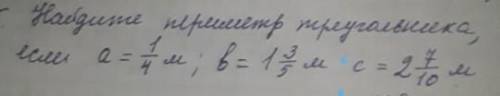 Найдите периметр треугольника,
если a = 1/4 м; b = 1 3/5 м c = 2 7/10 м